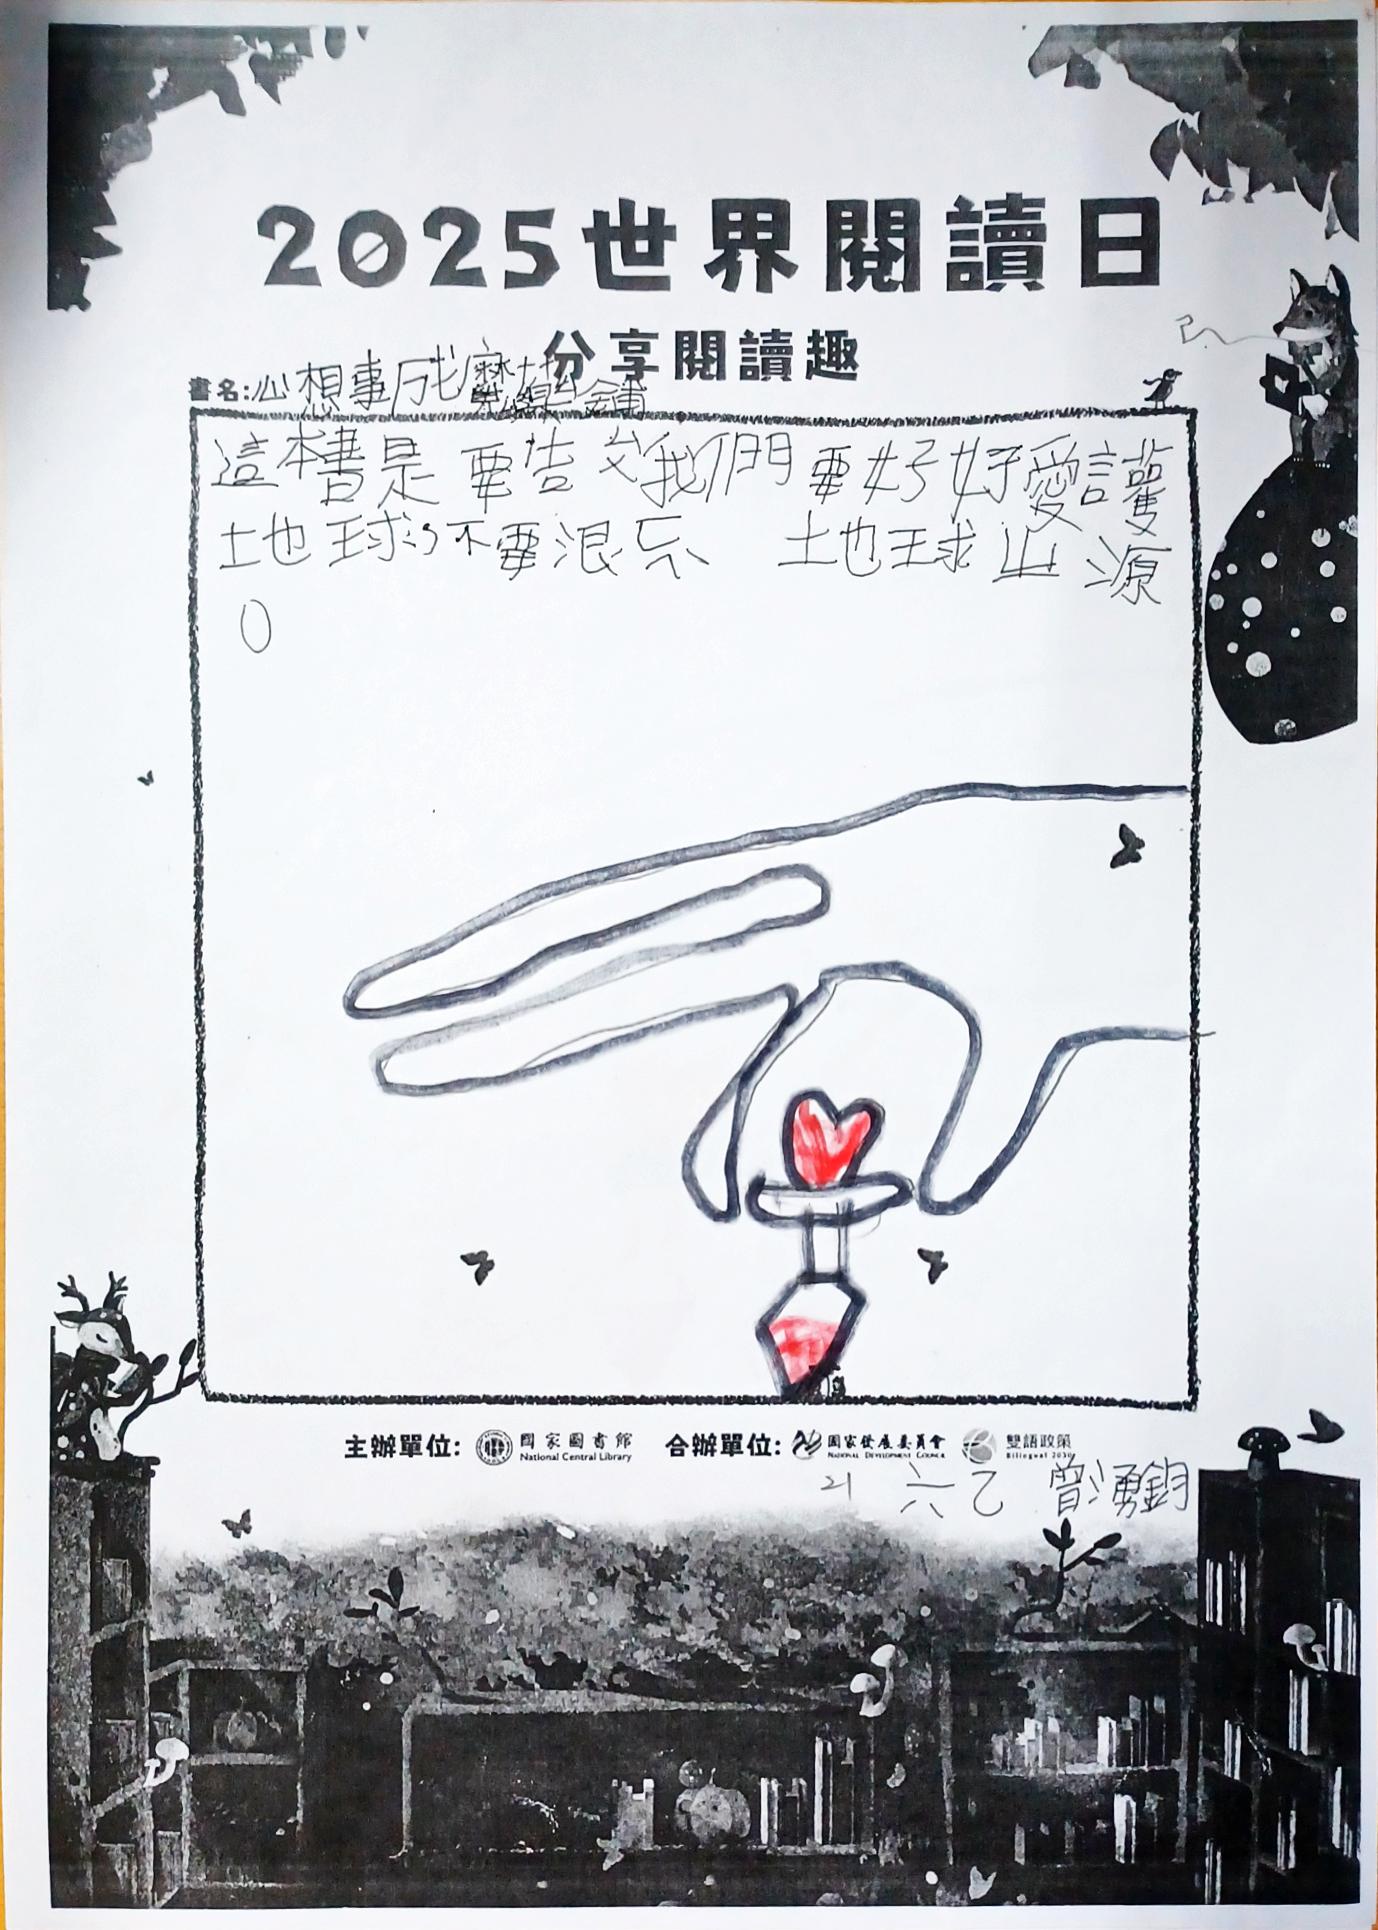 2025世界閱讀日
分享閱讀趣
書名:心想事成魔藥鋪
這本書是要告我們要好好愛護
地球,不要浪 地球 源
。
主辦單位: 國家圖書館 National Central Library 合辦單位: 國家發展委員會 NATIONAL DEVELOPMENT COUNCIL 雙語政策 Bilingual 2030
21 六乙 曾湧鈞